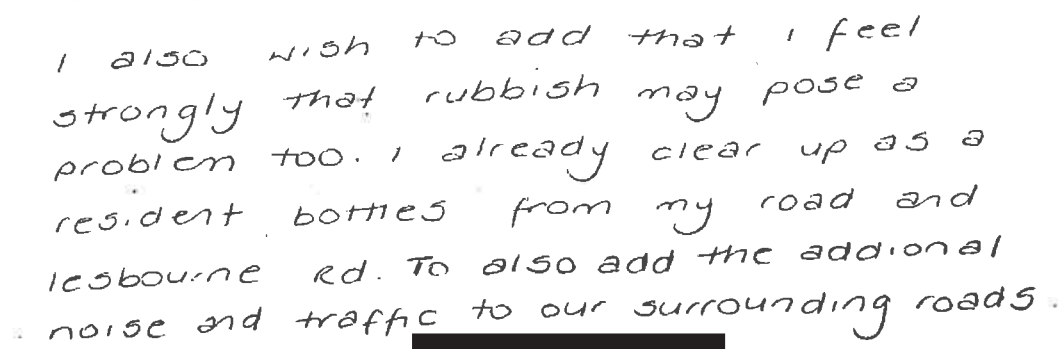 I also wish to add that I feel
strongly that rubbish may pose a
problem too. I already clear up as a
resident bottles from my road and
lesbourne Rd. To also add the addional
noise and traffic to our surrounding roads.